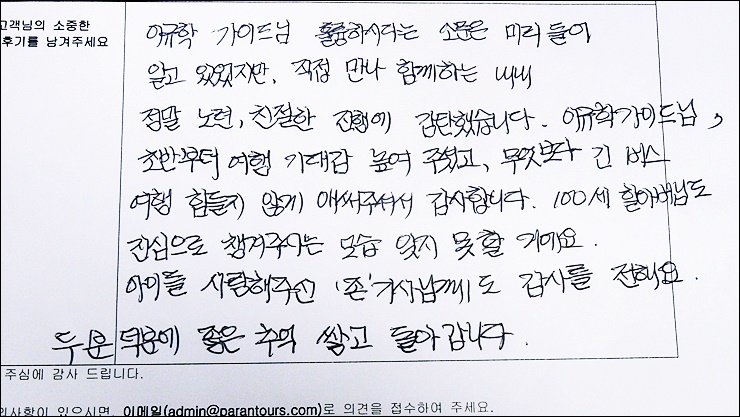 고객님의 소중한
후기를 남겨주세요
이규학 가이드님 훌륭하시다는 소문은 미리 들어
알고 있었지만, 직접 만나 함께하는 내내
정말 노련, 친절한 진행에 감탄했습니다. 이규학가이드님,
초반부터 여행 기대감 높여 주셨고, 무엇보다 긴 버스
여행 힘들지 않게 애써주셔서 감사합니다. 100세 할아버님도
진심으로 챙겨주시는 모습 잊지 못할 거예요.
아이들 사랑해주신 '존'기사님께도 감사를 전해요.
두 분 덕분에 좋은 추억 쌓고 돌아갑니다.
주심에 감사 드립니다.
의사항이 있으시면, 이메일(admin@parantours.com)로 의견을 접수하여 주세요.